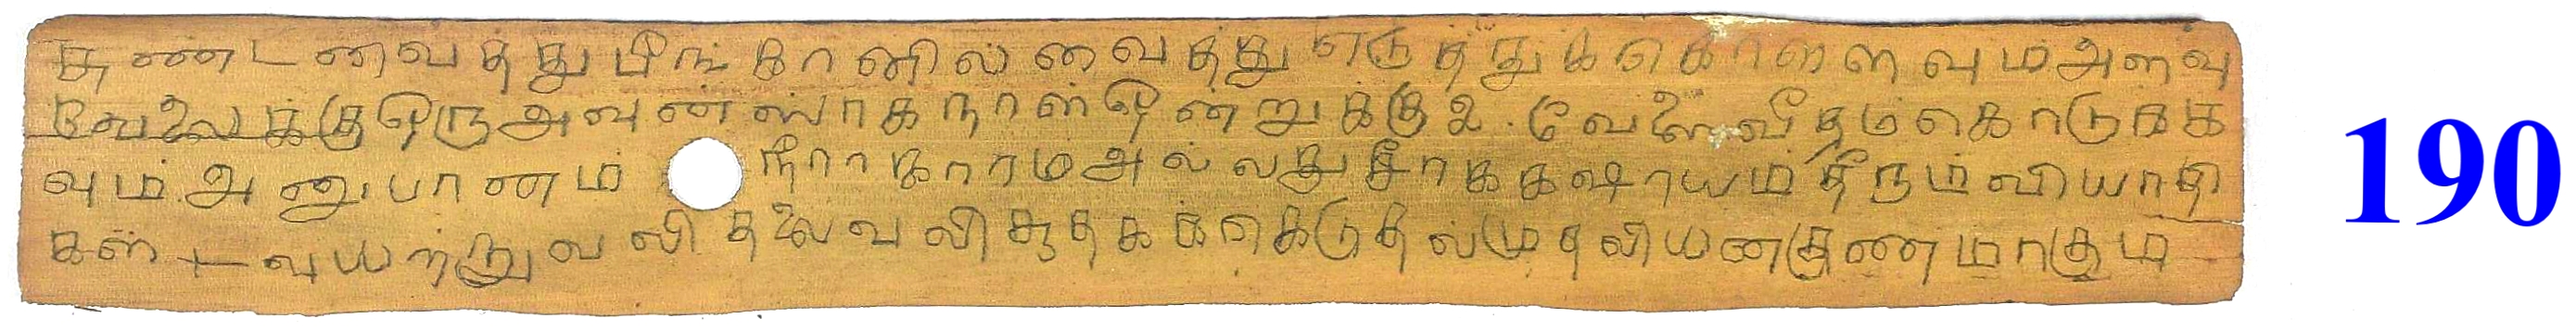 சுண்டவைத்து பீங்கானில் வைத்து எடுத்துக்கொள்ளவும் அளவு
வேலைக்கு ஒரு அவுன்ஸாக நாள் ஒன்றுக்கு ௨. வேளை வீதம் கொடுக்க
வும். அனுபானம் நீராகாரம் அல்லது சீரகக்ஷாயம் தீரும் வியாதி
கள் + வயற்று வலி தலைவலி சூதகக்கெடுதல் முதலியன குணமாகும்
190